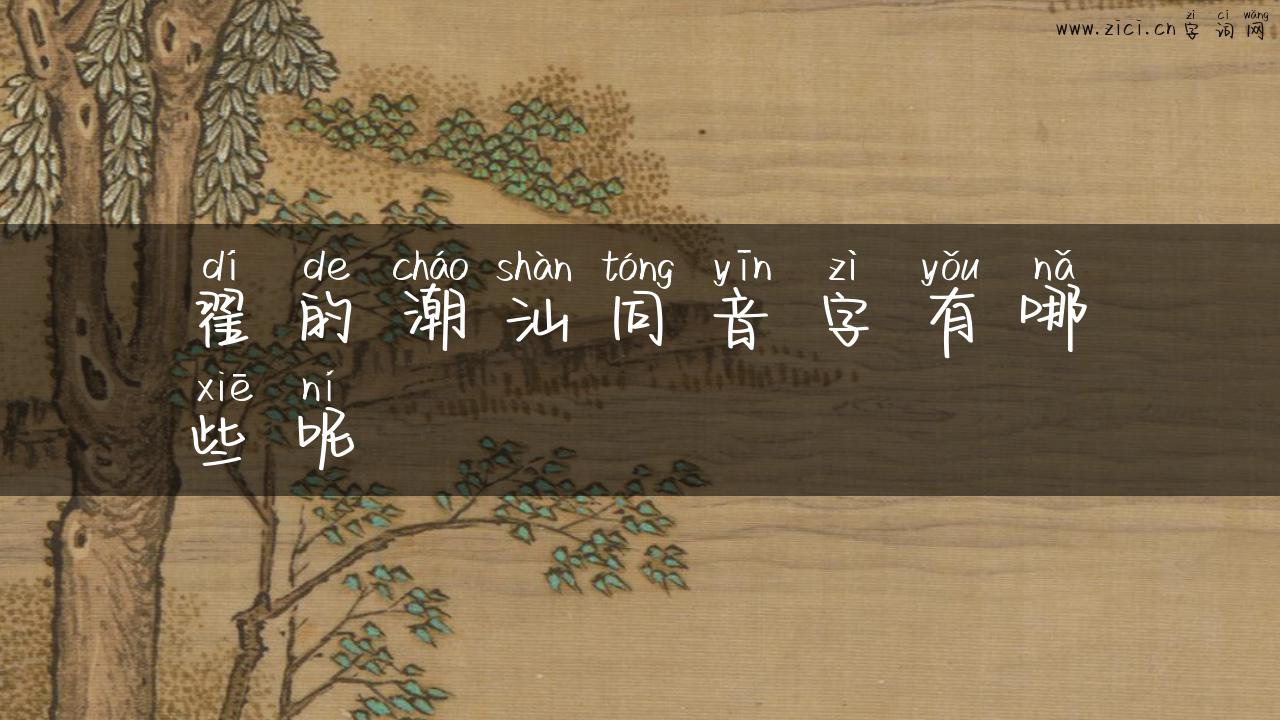 zì cí wǎng
www.zici.cn 字词网
dí de cháo shàn tóng yīn zì yǒu nǎ
翟的潮汕同音字有哪
xiē ní
些呢